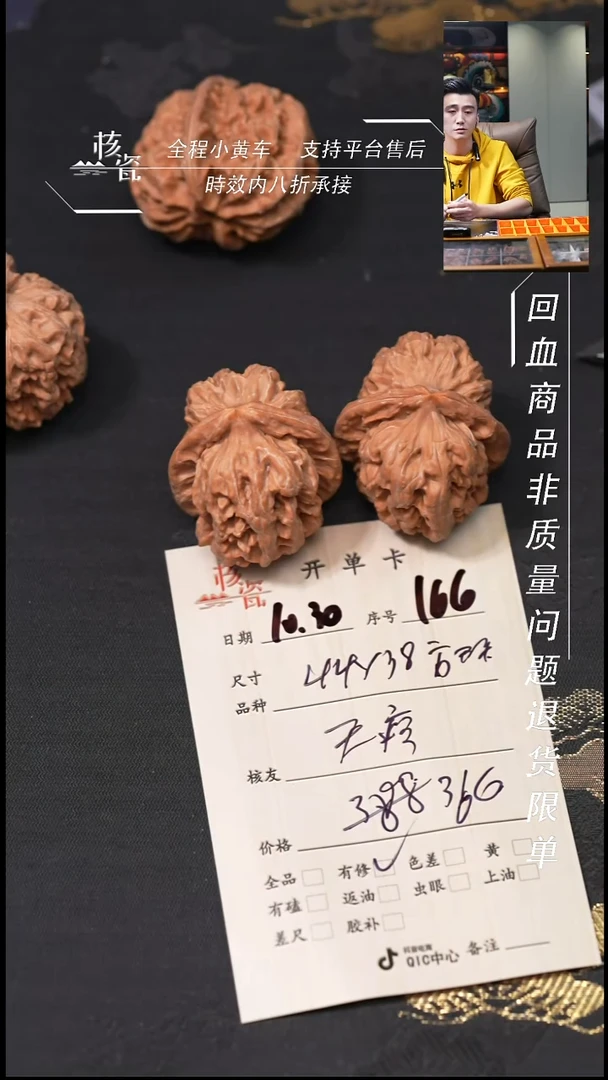 核瓷
全程小黄车 支持平台售后
時效内八折承接
回血商品非质量问题退货限单
核瓷
开单卡
日期 10.30 序号 166
尺寸 44/38
品种
核友
388 366
价格
全品 有修 ✓ 色差 黄
有磕 返油 虫眼 上油
差尺 胶补
抖音电商
QIC中心 备注